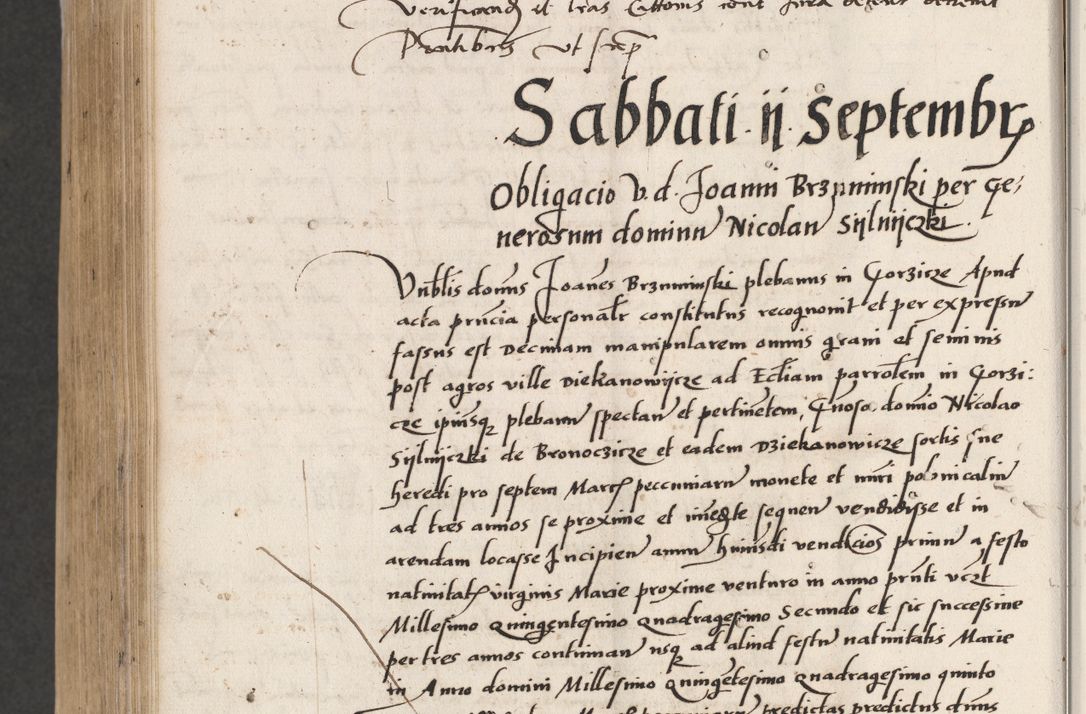 Pntibus ut supra
Sabbati ii Septembr
Obligacio v. d. Joanni Brzuninski per Ge-
nerosum dominu Nicolau Sijlnijczki
Vnblis domns Joanes Brzuminski plebanus in Gorzicze Apud
acta pnncia personalr constitutus recognouit et per expressu
fassus est Decimam manipularem omnis grani et seminis
post agros ville Diekanowijcze ad Eccliam parrolem in Gorzi:
cze ipiusq plebanu spectan et pertinetem, Gnoso domio Nicolao
Sijlnijczki de Bronoczicze et eadem Dziekanowicze sortis sue
heredi pro septem Marcs peccuniaru monete et nuri polonicaliu
ad tres annos se proxime et imedte sequen vendidisse et in
arendam locasse Incipien annu huiusdi vendicios primu a festo
natiuitats virginis Marie proxime venturo in anno prnti vczt
Millesimo quingentesimo quadragesimo Secundo et sic successiue
per tres annos continuan usq ad aliud festu natiuitatis Marie
in Anno domini Millesimo quingetesimo quadragesimo quinto
predictas predictus dnus